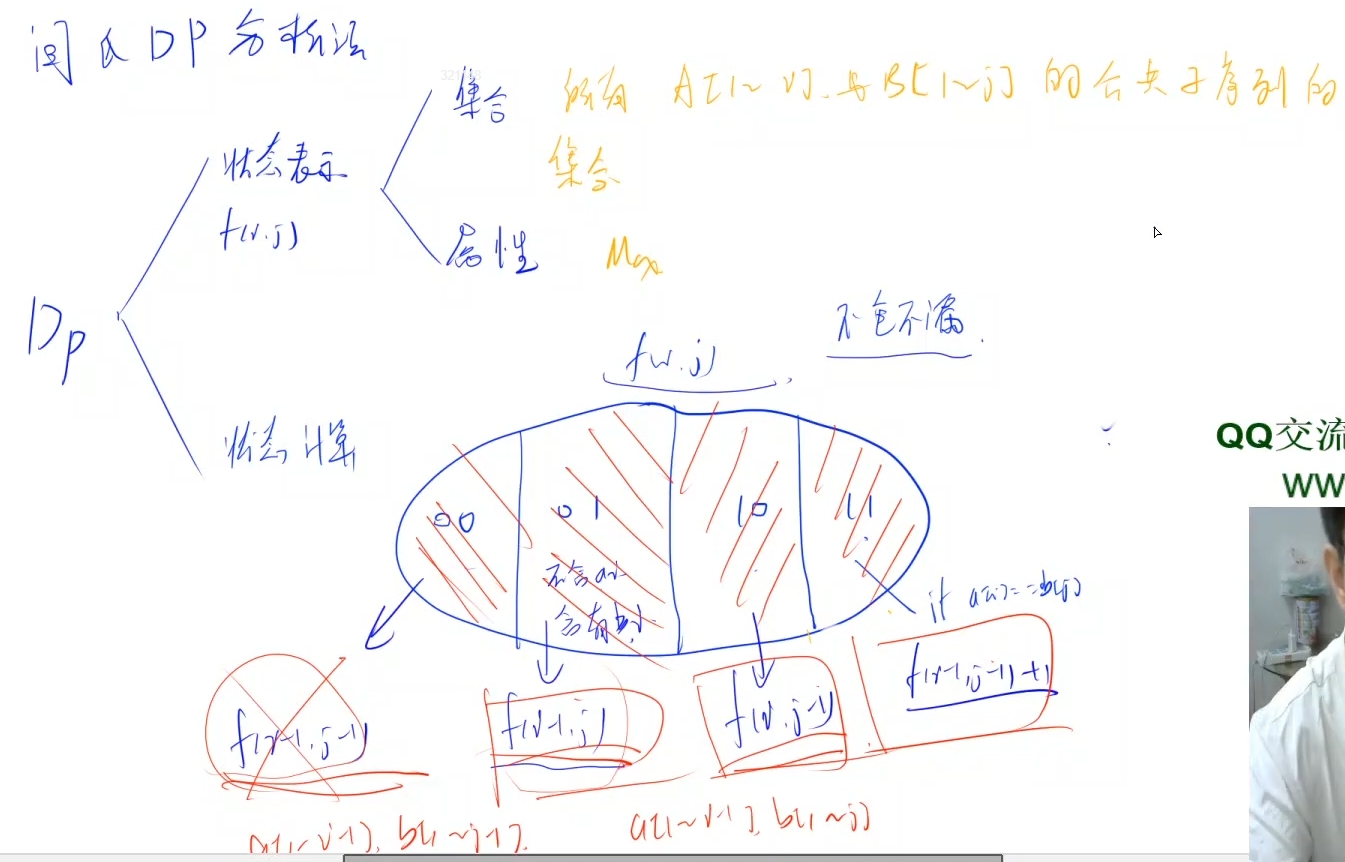 闫氏DP分析法
集合 所有 A[1~i] 与B[1~j] 的公共子序列的
集合
状态表示
f(i,j)
属性 Max
Dp
不重不漏
f(i,j)
状态计算
QQ交流
WW
00 01 10 11
不含ai
含有bj
if a[i]==b[j]
f(i-1,j-1)+1
f(i-1,j-1) f(i-1,j) f(i,j-1)
a[1~i-1], b[1~j-1]. a[1~i-1], b[1~j]